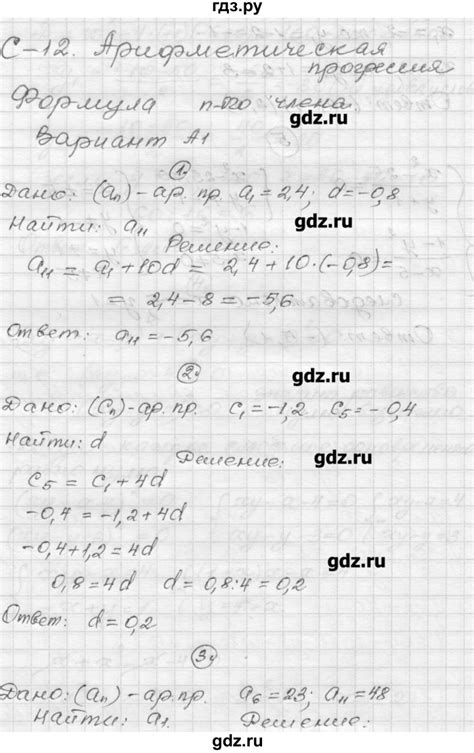 гдз.ру
С-12. Арифметическая
прогрессия
Формула n-го члена.
Вариант А1
gdz.ru
1.
Дано: (an) - ар. пр. a1 = 2,4; d = -0,8
Найти: a11
gdz.ru
Решение:
a11 = a1 + 10d = 2,4 + 10·(-0,8) =
= 2,4 - 8 = -5,6
Ответ: a11 = -5,6
gdz.ru
2.
Дано: (Cn) - ар. пр. C1 = -1,2 C5 = -0,4
Найти: d
Решение:
gdz.ru
C5 = C1 + 4d
-0,4 = -1,2 + 4d
-0,4 + 1,2 = 4d
gdz.ru
0,8 = 4d d = 0,8:4 = 0,2
Ответ: d = 0,2
gdz.ru
3.
Дано: (an) - ар. пр. a6 = 23; a11 = 48
Найти: a1. Решение:
gdz.ru